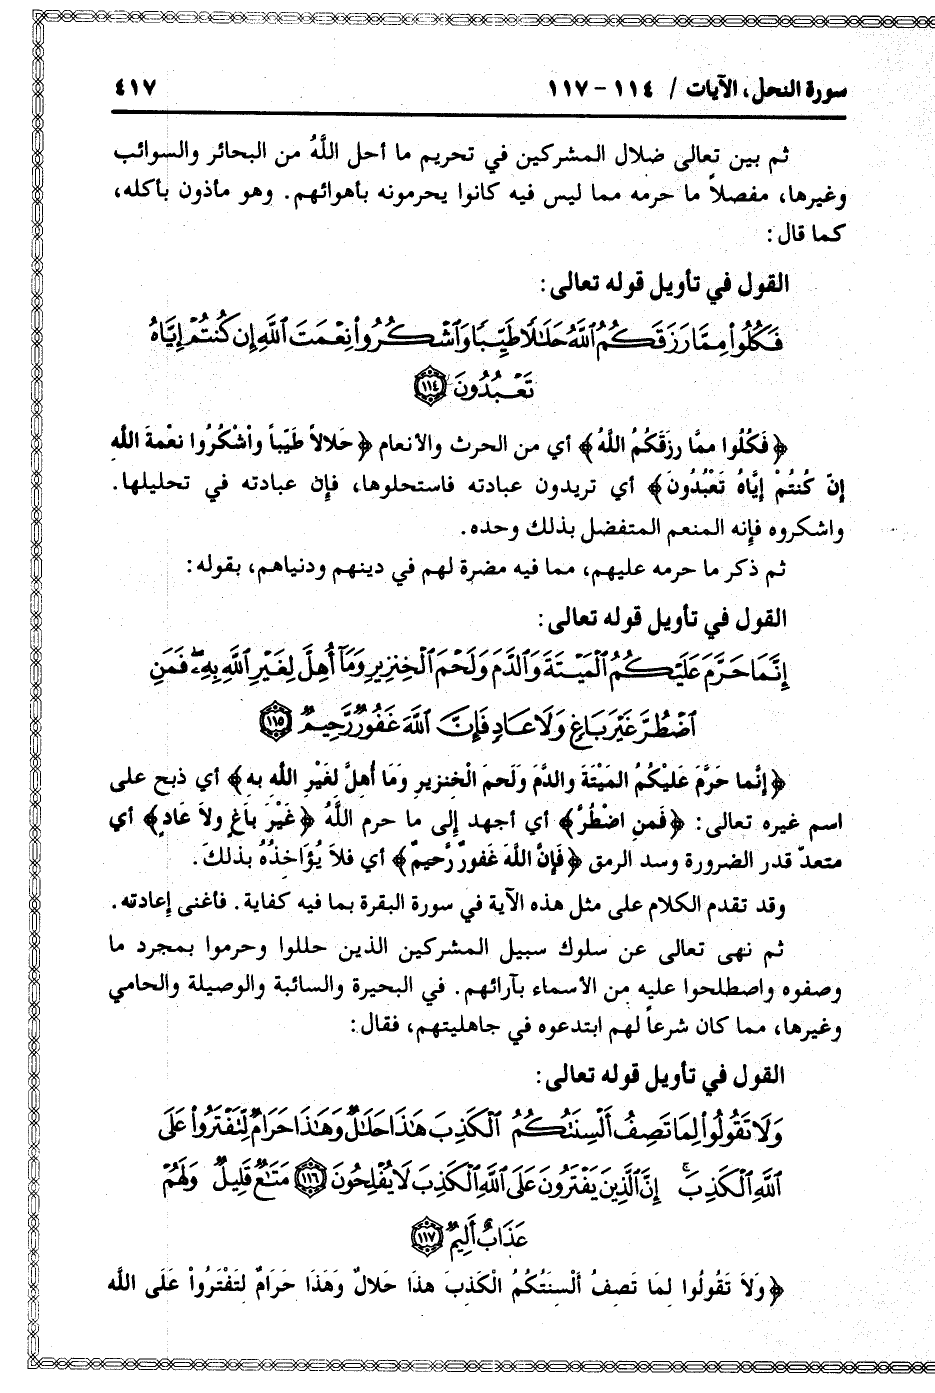 سورة النحل، الآيات / ١١٤ - ١١٧
٤١٧
ثم بين تعالى ضلال المشركين في تحريم ما أحل اللَّهُ من البحائر والسوائب
وغيرها، مفصلاً ما حرمه مما ليس فيه كانوا يحرمونه بأهوائهم. وهو مأذون بأكله،
كما قال:
القول في تأويل قوله تعالى:
فَكُلُوا۟ مِمَّا رَزَقَكُمُ ٱللَّهُ حَلَٰلًا طَيِّبًا وَٱشْكُرُوا۟ نِعْمَتَ ٱللَّهِ إِن كُنتُمْ إِيَّاهُ
تَعْبُدُونَ ١١٤
﴿فَكُلُوا ممَّا رزَقَكُمُ اللَّهُ﴾ أي من الحرث والأنعام ﴿حَلالاً طَيّباً وأشْكُرُوا نعْمةَ اللَّهِ
إنّ كُنتُمْ إيَّاهُ تَعْبُدُونَ﴾ أي تريدون عبادته فاستحلوها، فإن عبادته في تحليلها.
واشكروه فإنه المنعم المتفضل بذلك وحده.
ثم ذكر ما حرمه عليهم، مما فيه مضرة لهم في دينهم ودنياهم، بقوله:
القول في تأويل قوله تعالى:
إِنَّمَا حَرَّمَ عَلَيْكُمُ ٱلْمَيْتَةَ وَٱلدَّمَ وَلَحْمَ ٱلْخِنزِيرِ وَمَآ أُهِلَّ لِغَيْرِ ٱللَّهِ بِهِۦ فَمَنِ
ٱضْطُرَّ غَيْرَ بَاغٍ وَلَا عَادٍ فَإِنَّ ٱللَّهَ غَفُورٌ رَّحِيمٌ ١١٥
﴿إنَّما حَرَّمَ عَليْكُمُ المَيْتَةَ والدَّمَ وَلَحمَ الْخنزير وَمَا أُهلَّ لغَيْرِ اللَّه به﴾ أي ذبح على
اسم غيره تعالى: ﴿فَمنِ اضْطُرَّ﴾ أي أجهد إلى ما حرم اللَّهُ ﴿غَيْرَ باَغٍ ولاَ عَادٍ﴾ أي
متعدّ قدر الضرورة وسد الرمق ﴿فَإنَّ اللَّهَ غَفورٌ رَّحيمٌ﴾ أي فلاَ يُؤَاخذُهُ بذلكَ.
وقد تقدم الكلام على مثل هذه الآية في سورة البقرة بما فيه كفاية. فأغنى إعادته.
ثم نهى تعالى عن سلوك سبيل المشركين الذين حللوا وحرموا بمجرد ما
وصفوه واصطلحوا عليه من الأسماء بآرائهم. في البحيرة والسائبة والوصيلة والحامي
وغيرها، مما كان شرعاً لهم ابتدعوه في جاهليتهم، فقال:
القول في تأويل قوله تعالى:
وَلَا تَقُولُوا۟ لِمَا تَصِفُ أَلْسِنَتُكُمُ ٱلْكَذِبَ هَٰذَا حَلَٰلٌ وَهَٰذَا حَرَامٌ لِّتَفْتَرُوا۟ عَلَى
ٱللَّهِ ٱلْكَذِبَ ۚ إِنَّ ٱلَّذِينَ يَفْتَرُونَ عَلَى ٱللَّهِ ٱلْكَذِبَ لَا يُفْلِحُونَ ١١٦ مَتَٰعٌ قَلِيلٌ وَلَهُمْ
عَذَابٌ أَلِيمٌ ١١٧
﴿وَلاَ تَقُولُوا لِمَا تَصفُ أَلْسنَتُكُمُ الْكَذبَ هذَا حَلالٌ وَهَذَا حَرَامٌ لتَفْتَرُواْ عَلَى اللَّه